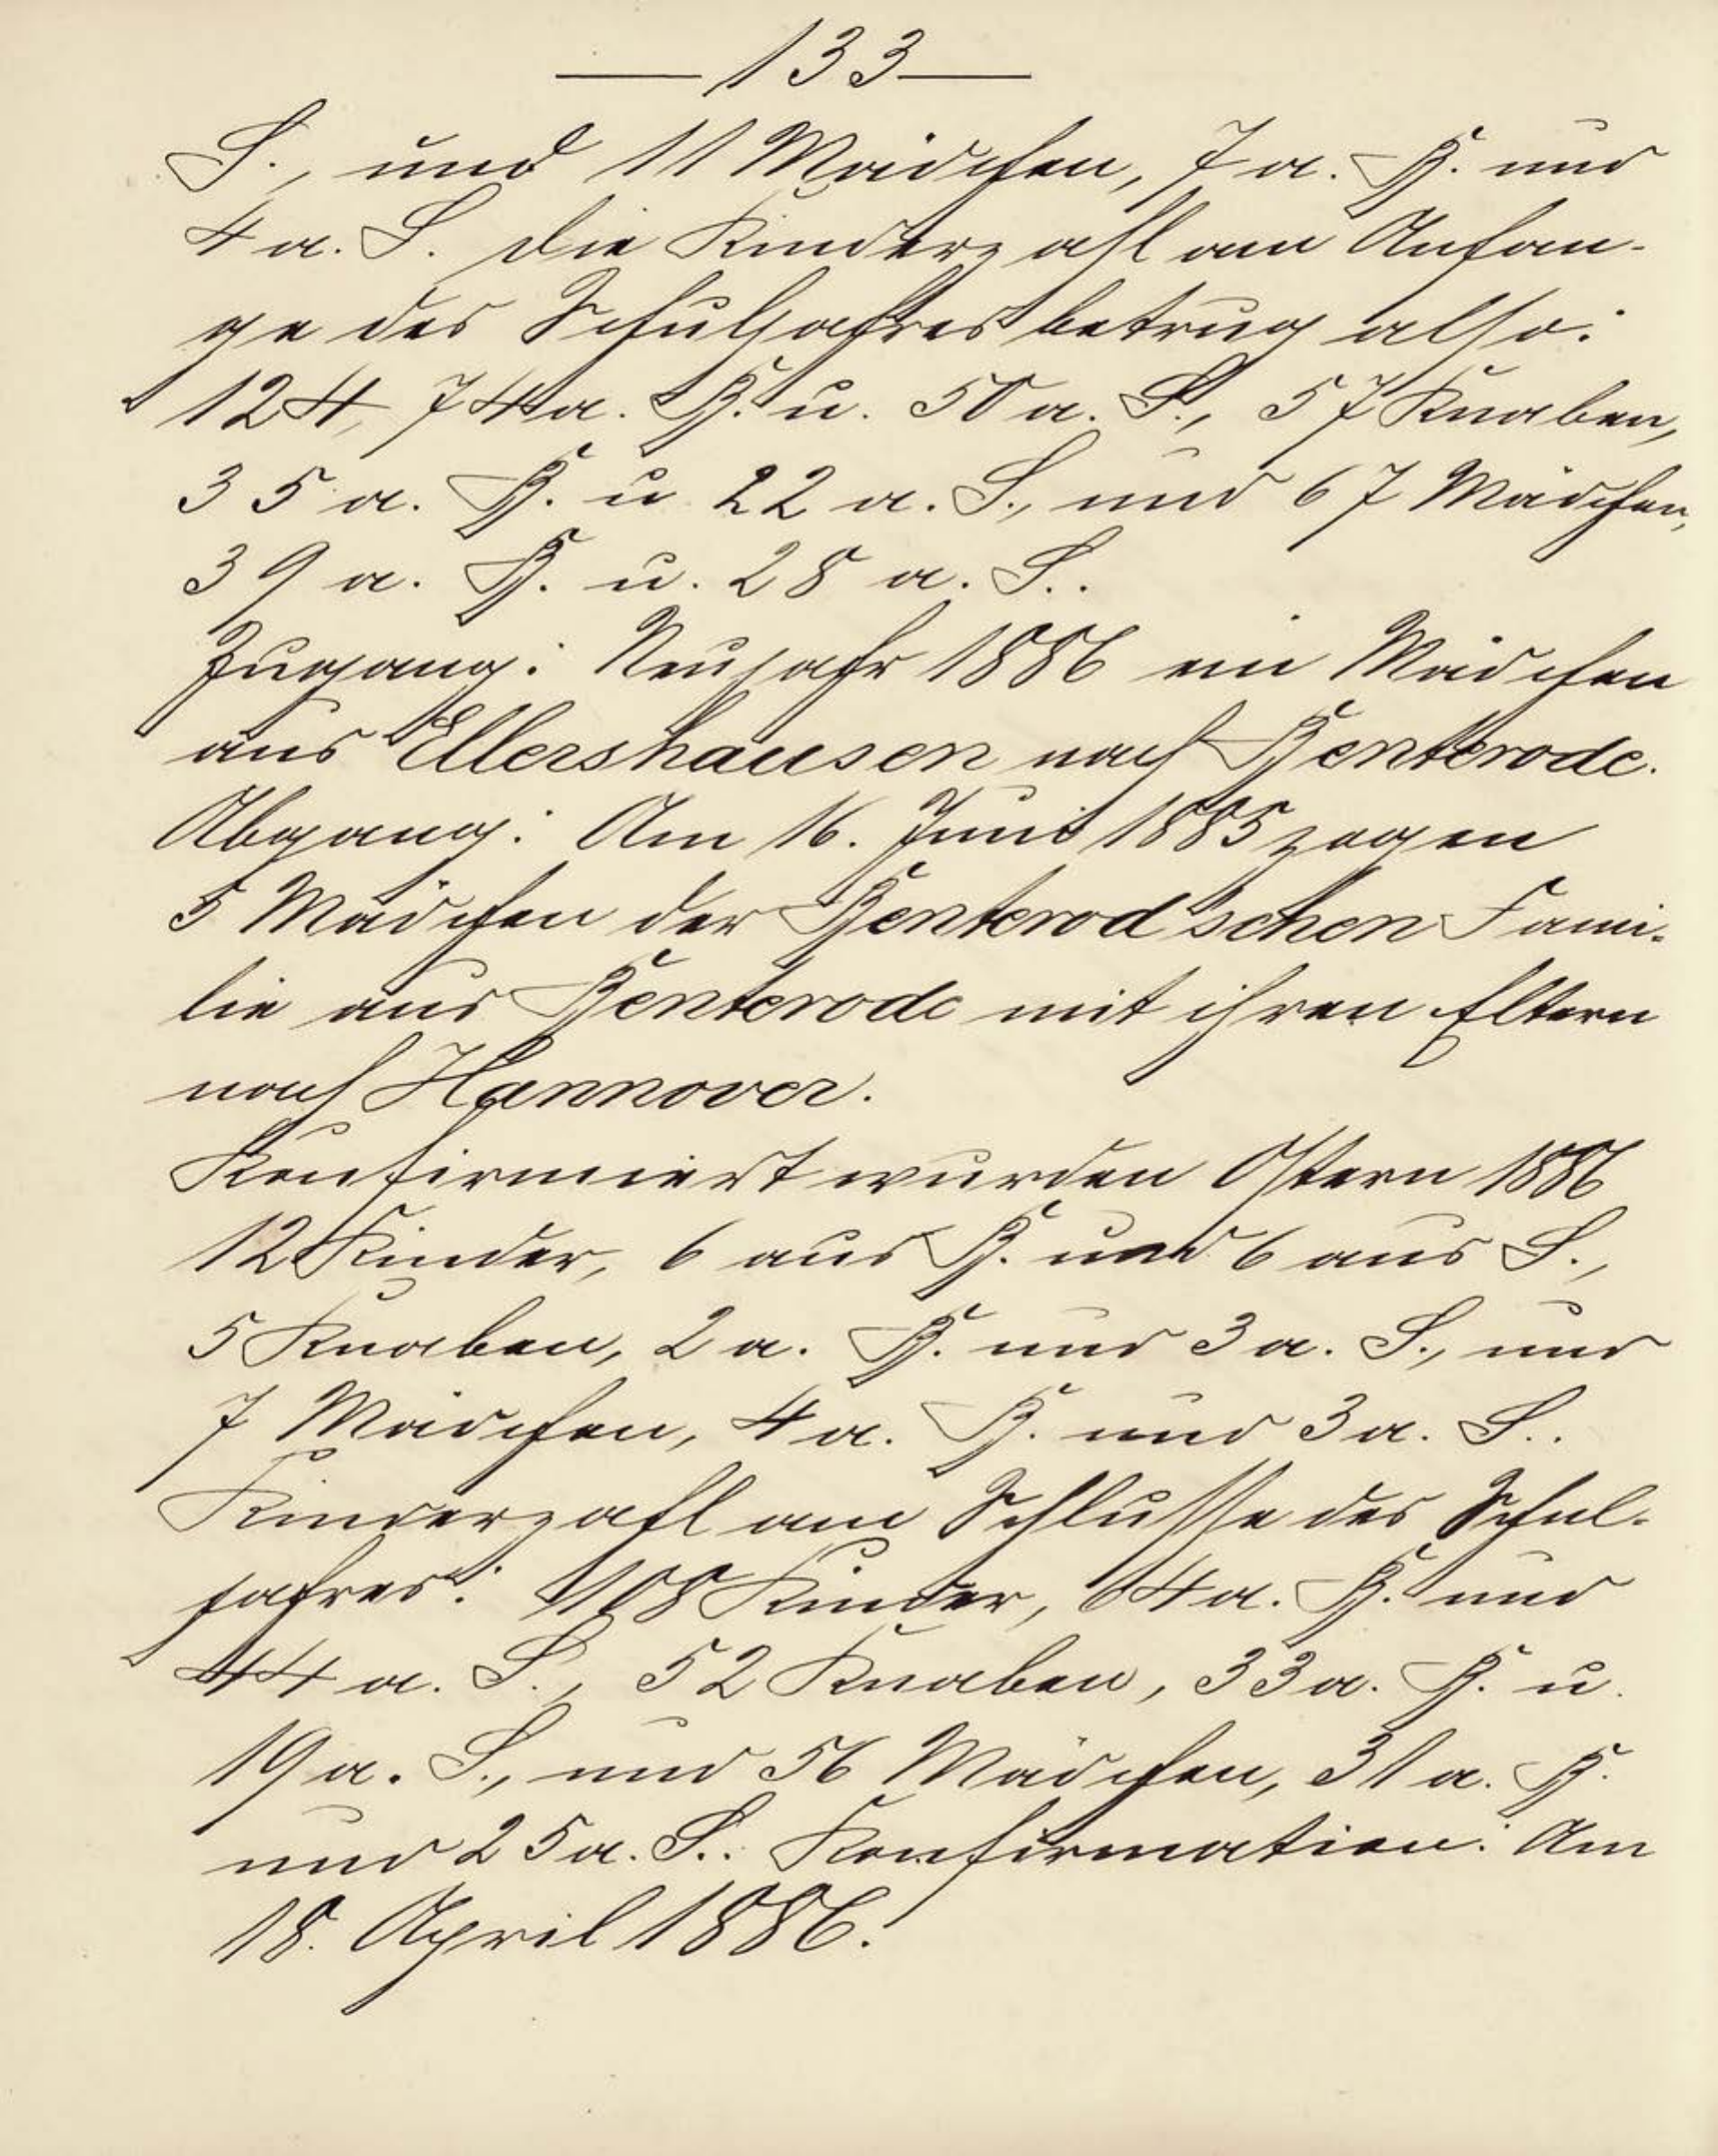 — 133 —
S., und 11 Mädchen, 7 a. B. und
4 a. S. Die Kinderzahl am Anfan-
ge des Schuljahres betrug also:
124, 74 a. B. u. 50 a. S., 57 Knaben,
35 a. B. u. 22 a. S., und 67 Mädchen,
39 a. B. u. 28 a. S..
Zugang: Neujahr 1886 ein Mädchen
aus Ellershausen nach Benterode.
Abgang: Am 16. Juni 1885 zogen
5 Mädchen der Benterod'schen Fami-
lie aus Benterode mit ihren Eltern
nach Hannover.
Konfirmiert wurden Ostern 1886
12 Kinder, 6 aus B. und 6 aus S.,
5 Knaben, 2 a. B. und 3 a. S., und
7 Mädchen, 4 a. B. und 3 a. S..
Kinderzahl am Schlusse des Schul-
jahres: 108 Kinder, 64 a. B. und
44 a. S., 52 Knaben, 33 a. B. u.
19 a. S., und 56 Mädchen, 31 a. B.
und 25 a. S.. Konfirmation: Am
18. April 1886.